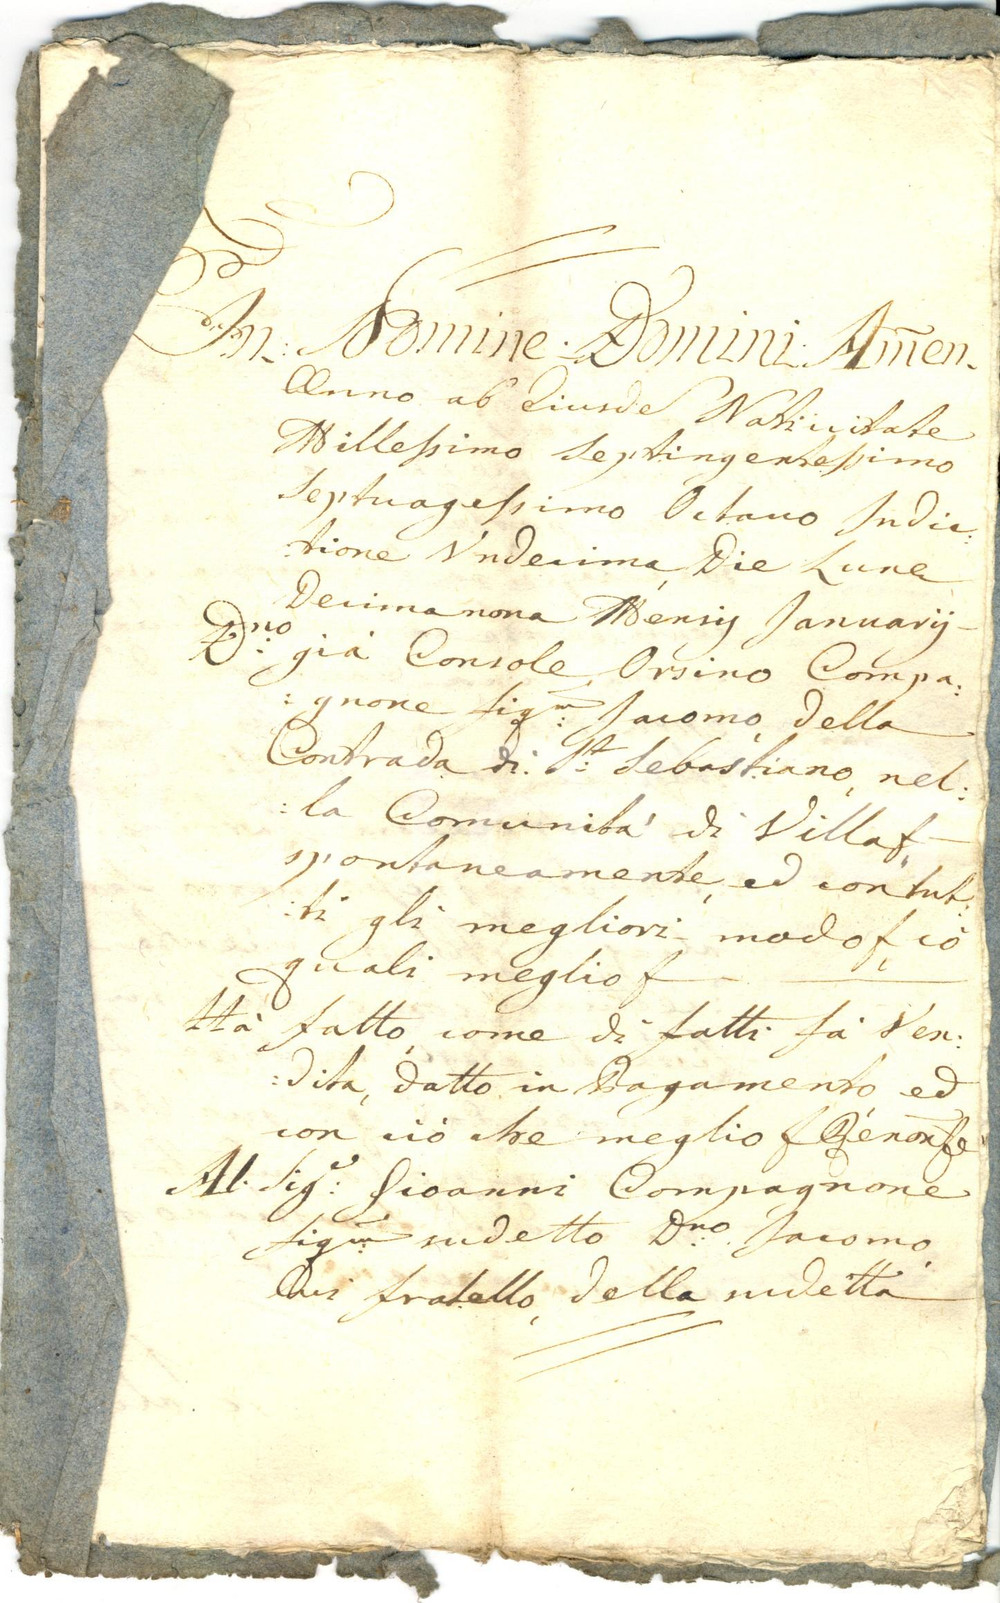 In: Nomine. Domini. Amen.
Anno ab Eiusde Natiuitate
Millessimo Septingentessimo
Septuagessimo Octauo Indic:
:tione Vndecima, Die Lune
Decimanona Mensis Januarij
D:no già Console Orsino Compa:
:gnone fiq:m Jacomo, della
Contrada di S:t Sebastiano, nel:
:la Comunità di Villaf
spontaneamente, ed con tut:
:ti gli megliori modof, ciò
quali megliof
Hà fatto, come di fatti fà Ven:
:dita, datto in Pagamento ed
con ciò che meglio f
Al Sig:r Gioanni Compagnone
fiq:m sudetto D:no Jacomo,
Lui fratello, della sudetta